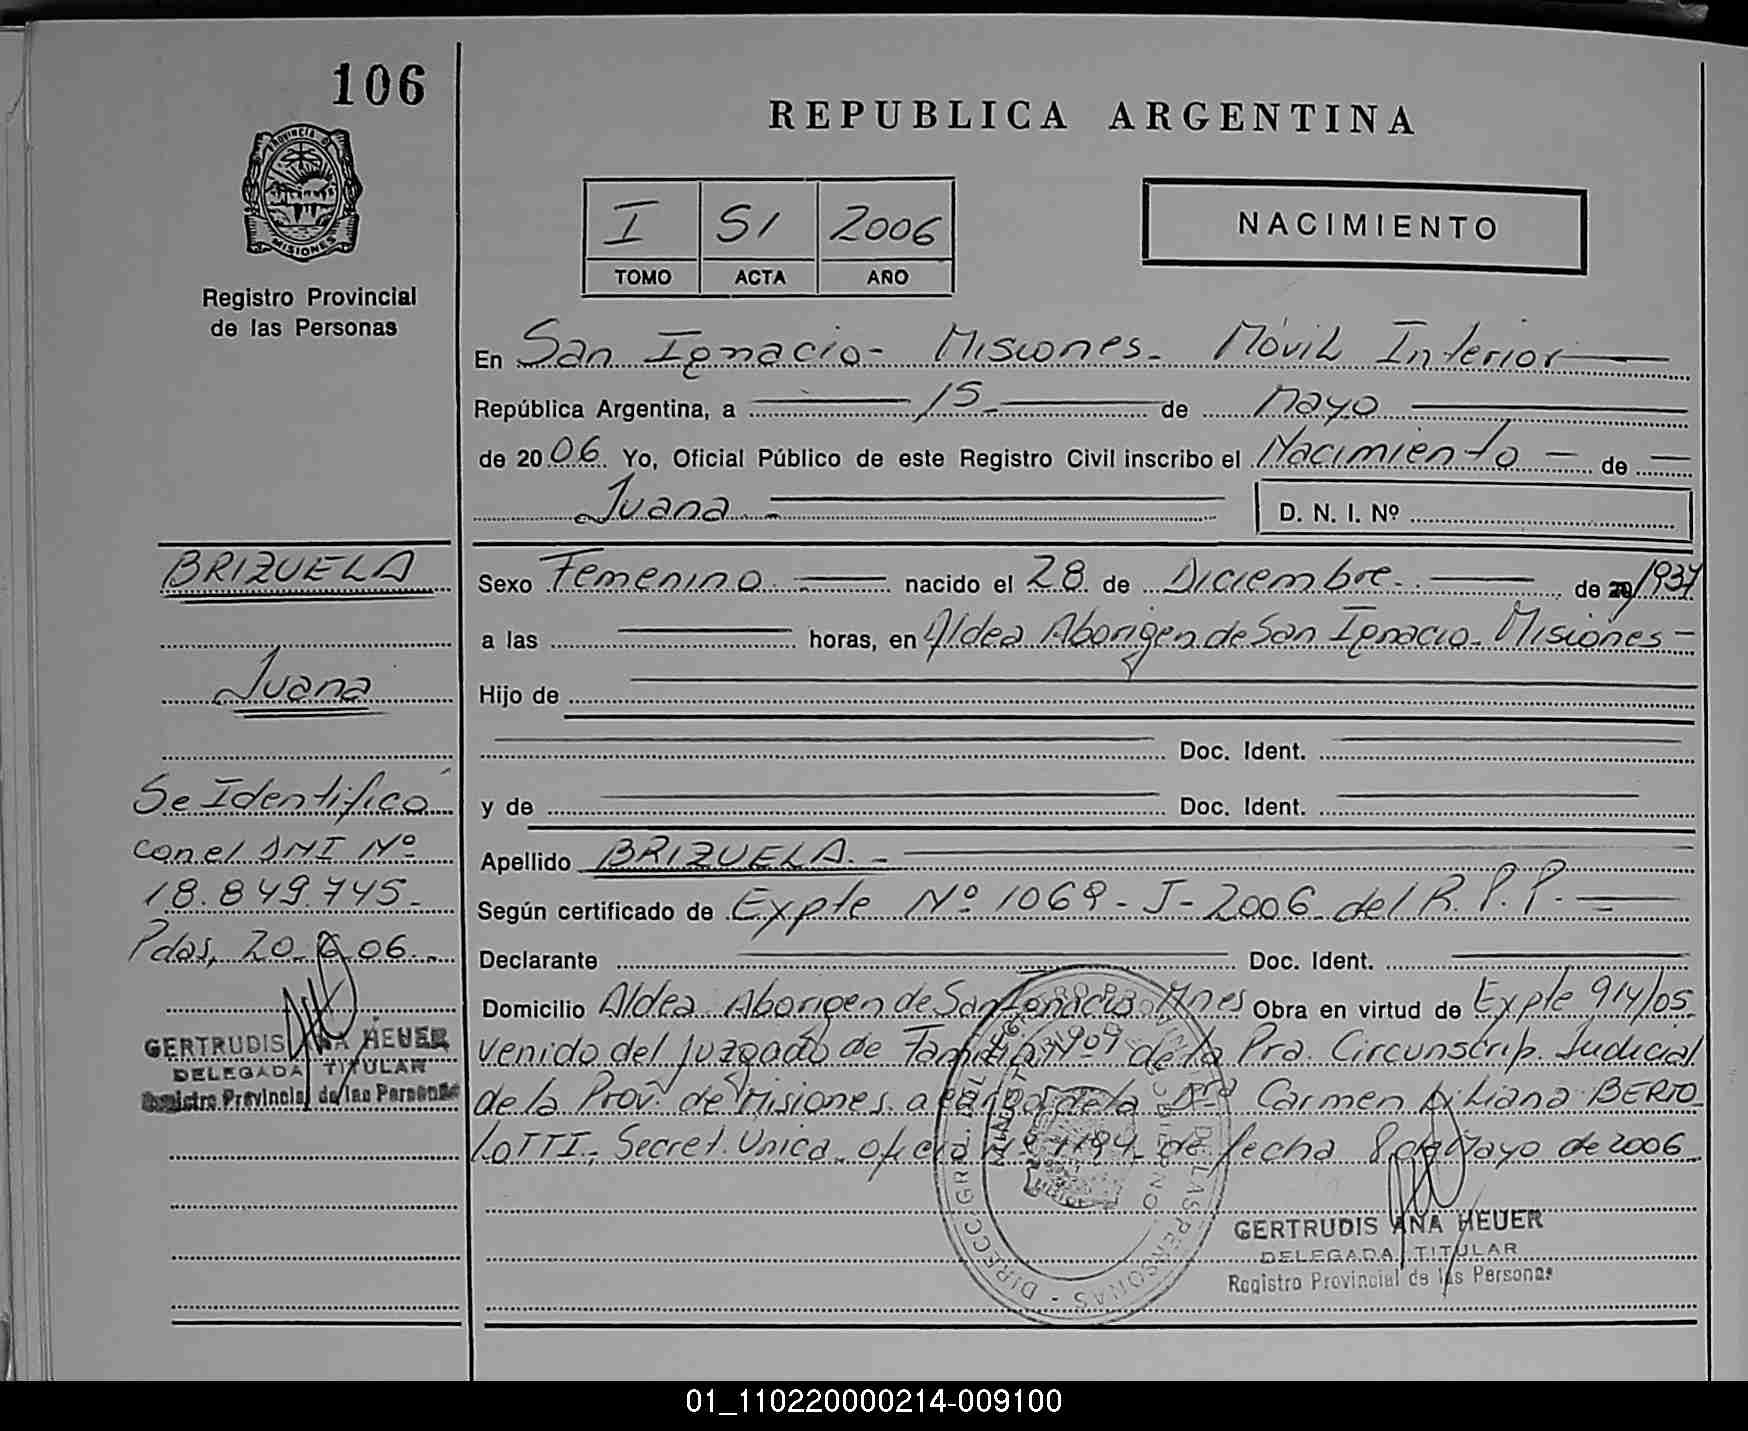 106
PROVINCIA DE
MISIONES
Registro Provincial
de las Personas
REPUBLICA ARGENTINA
I 51 2006
TOMO ACTA AÑO
NACIMIENTO
En San Ignacio- Misiones- Móvil Interior
República Argentina, a 15 de Mayo
de 2006. Yo, Oficial Público de este Registro Civil inscribo el Nacimiento de
Juana
D. N. I. Nº
Sexo Femenino nacido el 28 de Diciembre de 1937
a las horas, en Aldea Aborigen de San Ignacio- Misiones-
Hijo de
Doc. Ident.
y de Doc. Ident.
Apellido BRIZUELA.-
Según certificado de Expte Nº 1068-J-2006 del R. P. P.
Declarante Doc. Ident.
Domicilio Aldea Aborigen de San Ignacio Mnes Obra en virtud de Expte 914/05
venido del Juzgado de Familia Nº 01 de la Pra. Circunscrip. Judicial
de la Prov. de Misiones, a cargo de la Dra Carmen Liliana BERTO
LOTTI.- Secret. Unica. oficio Nº 1194 de fecha 8 de Mayo de 2006
GERTRUDIS ANA HEUER
DELEGADA TITULAR
Registro Provincial de las Personas
BRIZUELA
Juana
Se Identificó
con el DNI Nº
18.849.745-
Pdas, 20.6.06.
GERTRUDIS ANA HEUER
DELEGADA TITULAR
Registro Provincial de las Personas
01_110220000214-009100